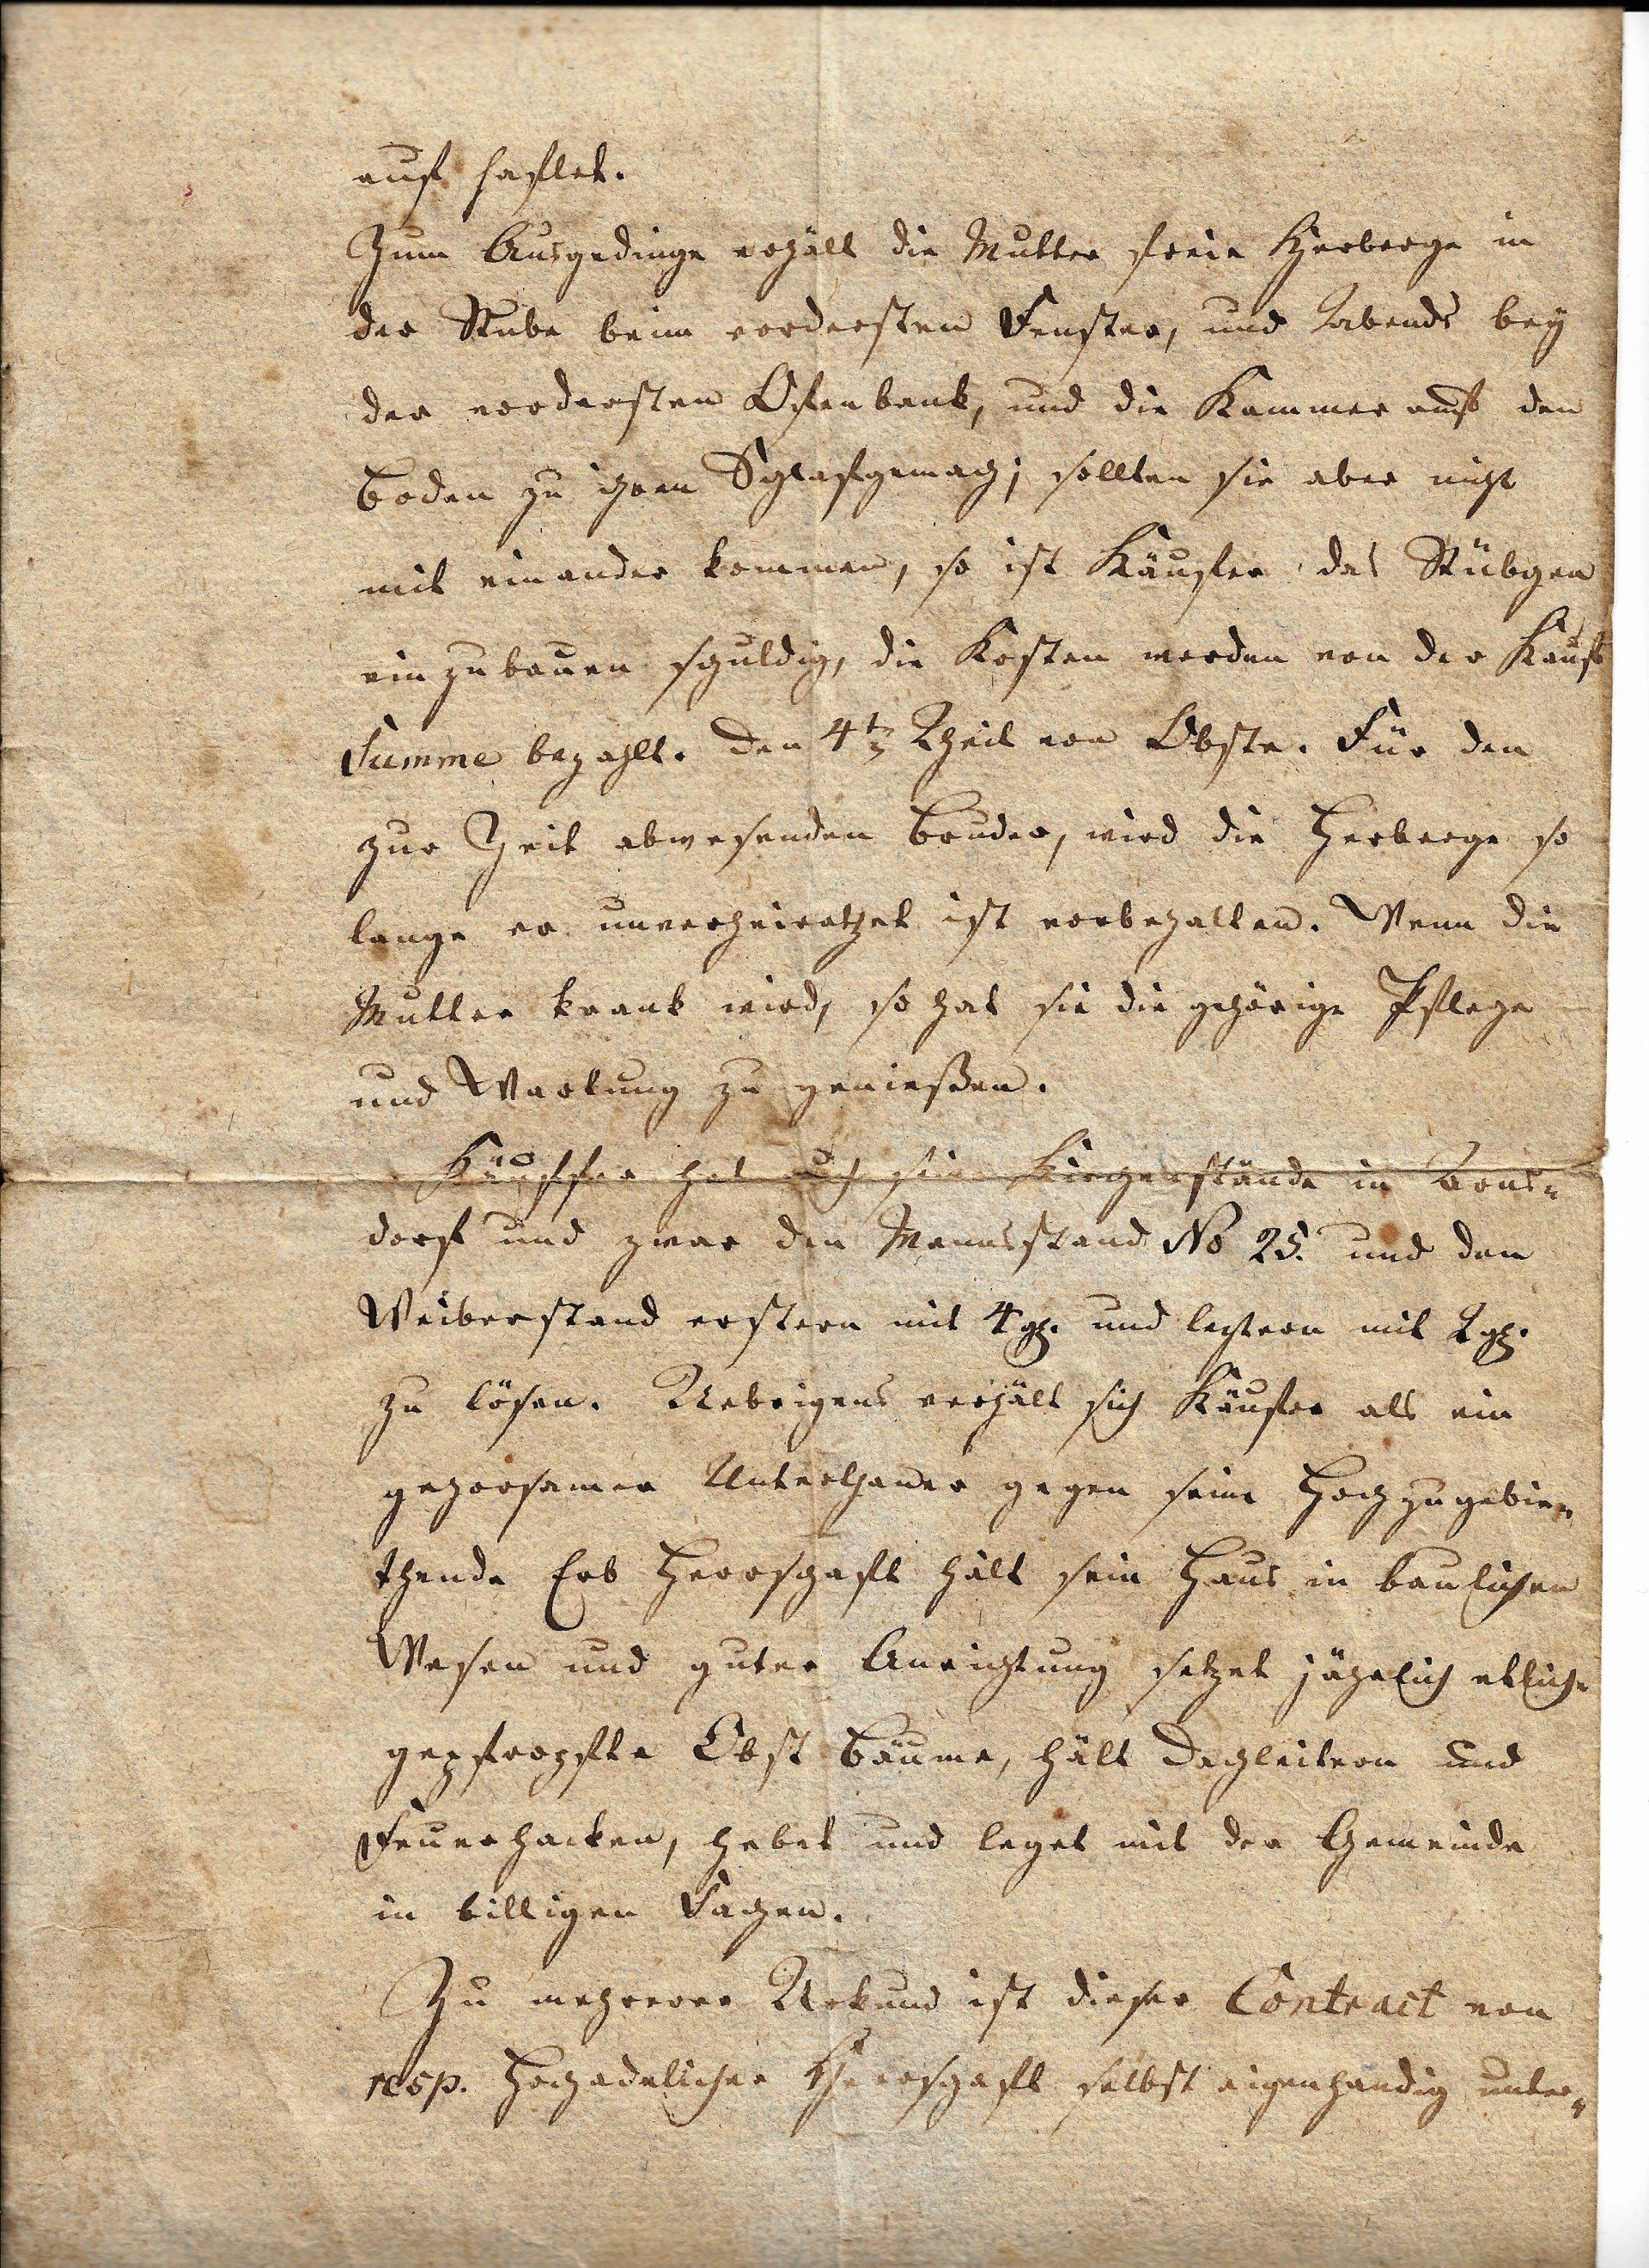 auf haftet.
Zum Ausgedinge erhält die Mutter freie Herberge in
der Stube beim vordersten Fenster, und Abends bey
der vordersten Ofenbank, und die Kammer auf den
Boden zu ihren Schlafgemach; sollten sie aber nicht
mit einander kommen, so ist Käufer das Stübgen
einzubauen schuldig, die Kosten werden von der Kauf
Summe bezahlt. Den 4tn Theil von Obste. Für den
zur Zeit abwesenden Bruder, wird die Herberge so
lange er unverheirathet ist vorbehalten. Wenn die
Mutter krank wird, so hat sie die gehörige Pflege
und Wartung zu genießen.
Käuffer hat auch Kirchenstände in
dorf und zwar den Mannsstand No 25. und den
Weiberstand erstern mit 4 gl. und leztern mit 2 gl.
zu lösen. Uebrigens verhält sich Käufer als ein
gehorsamer Unterthaner gegen seine Hochzugebie-
thende Erb Herrschaft hält sein Haus in baulichen
Wesen und guter Anrichtung setzet jährlich etliche
gepfropfte Obst Bäume, hält Dachleitern und
Feuerhacken, hebet und leget mit der Gemeinde
in billigen Sachen.
Zu mehrerer Urkund ist dieser Contract von
resp. Hochadelicher Herrschaft selbst eigenhändig unter-